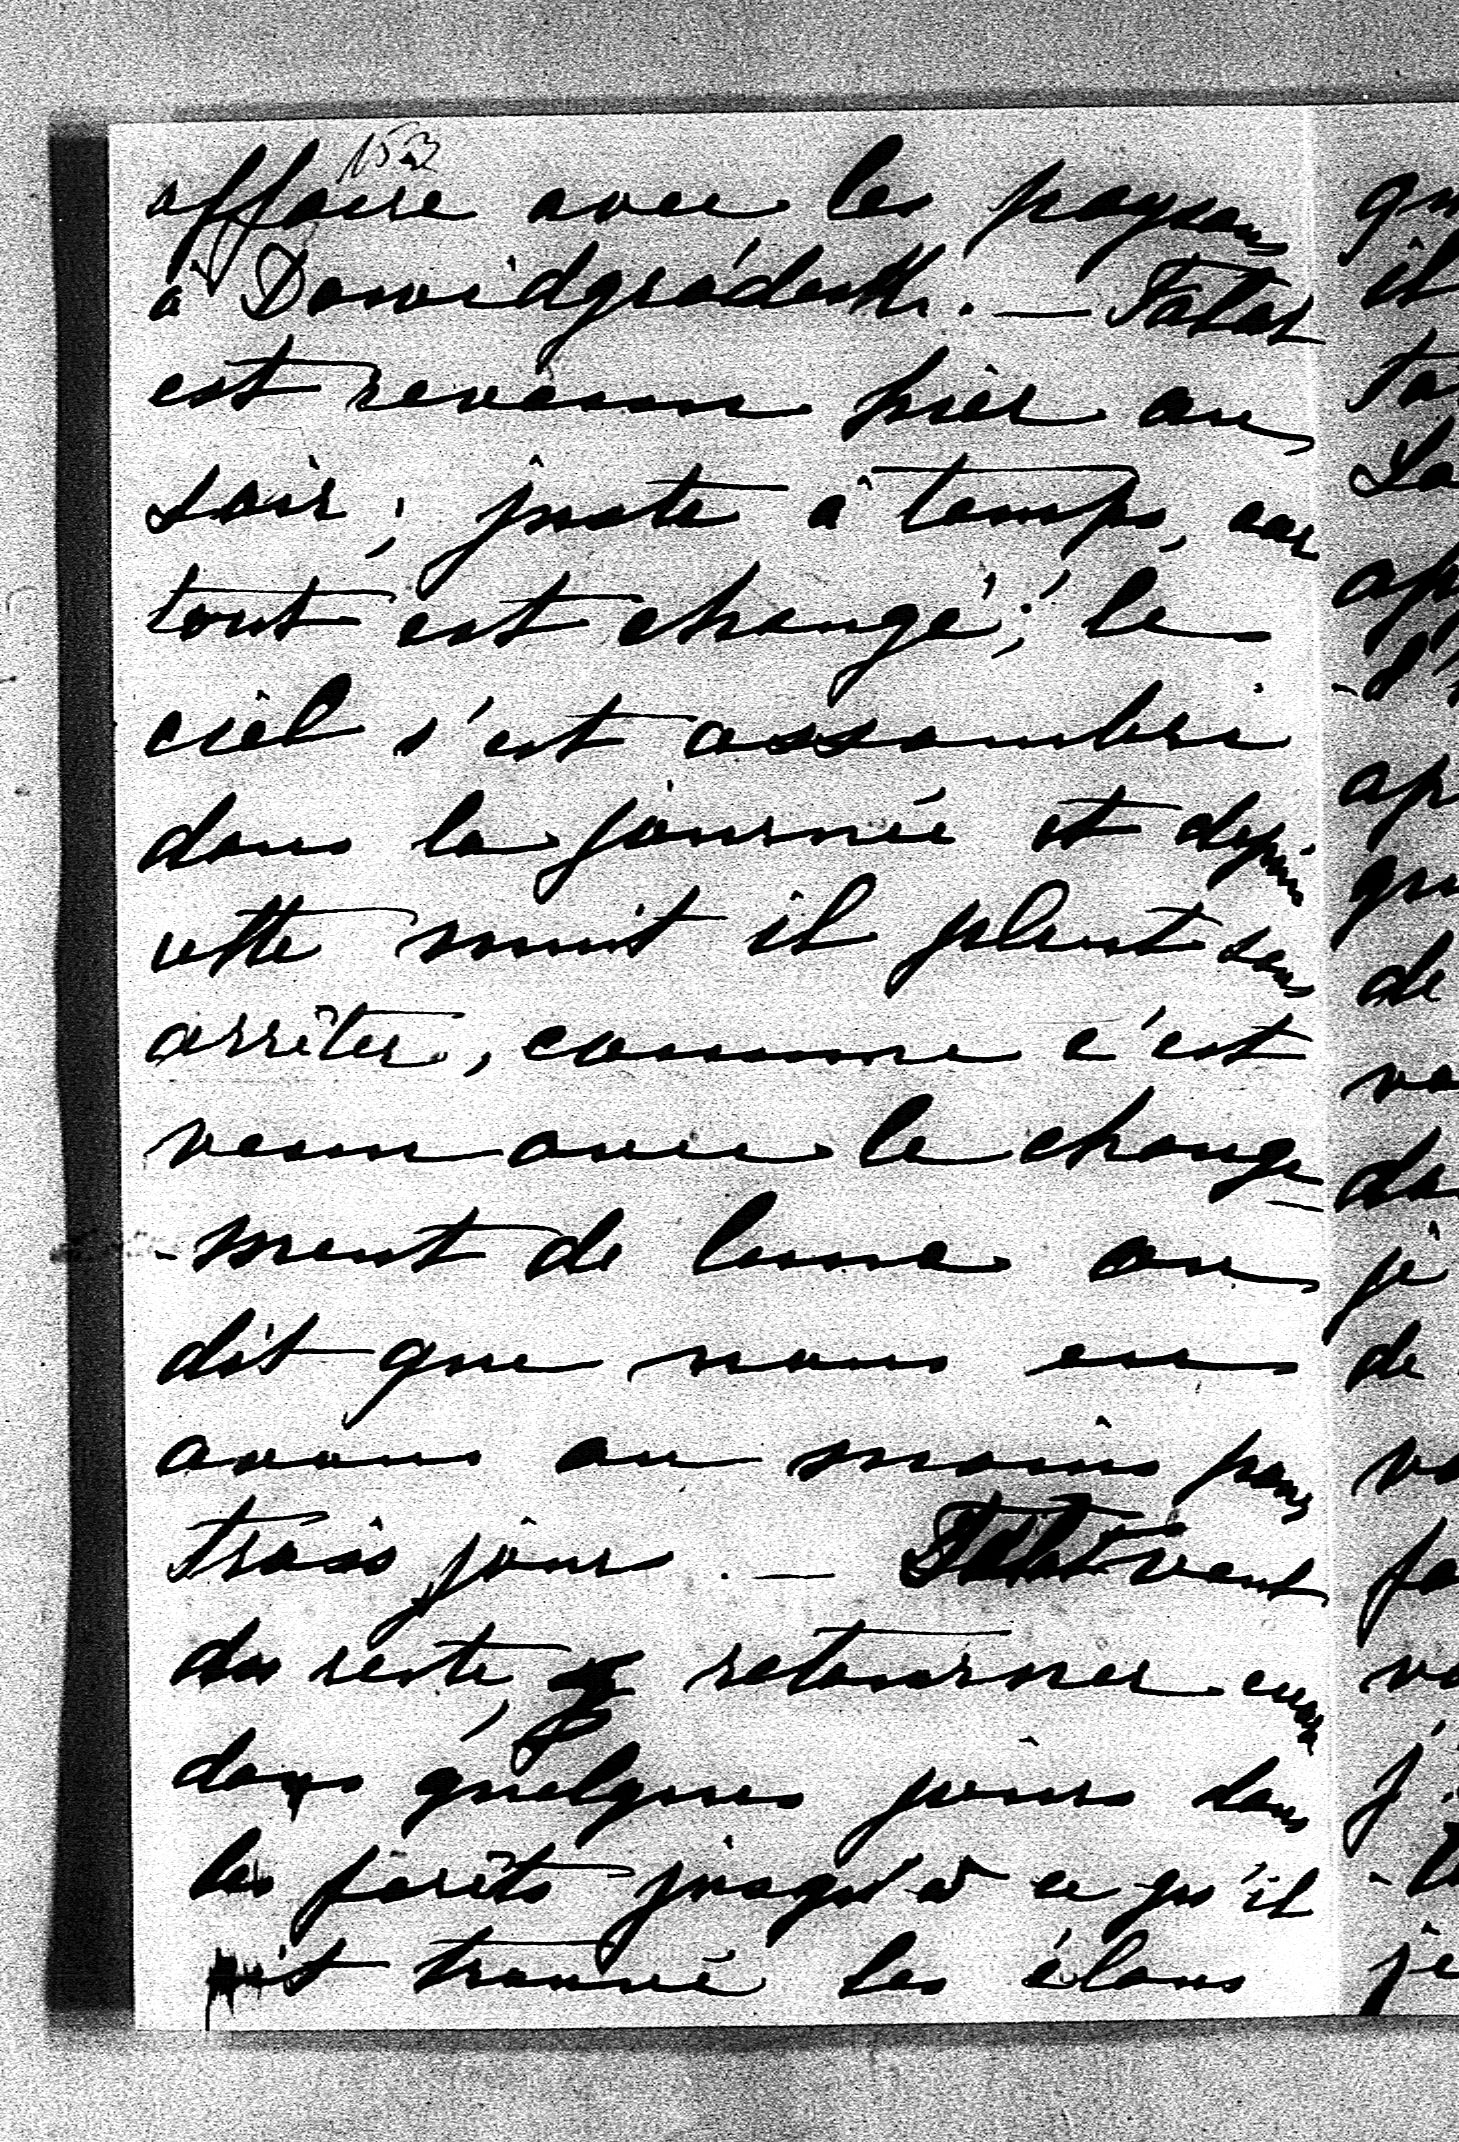 153
affaire avec les paysans
à Dawidgródeck. — Talat
est revenu hier au
soir, juste à temps, car
tout est changé; le
ciel s'est assombri
dans la journée et depuis
cette nuit il pleut sans
arrêter, comme c'est
venu avec le change-
-ment de lune on
dit que nous en
avons au moins pour
trois jours. — Talat veut
du reste, retourner encor
dans quelques jours dans
les forêts jusqu'à ce qu'il
ait trouvé les élans